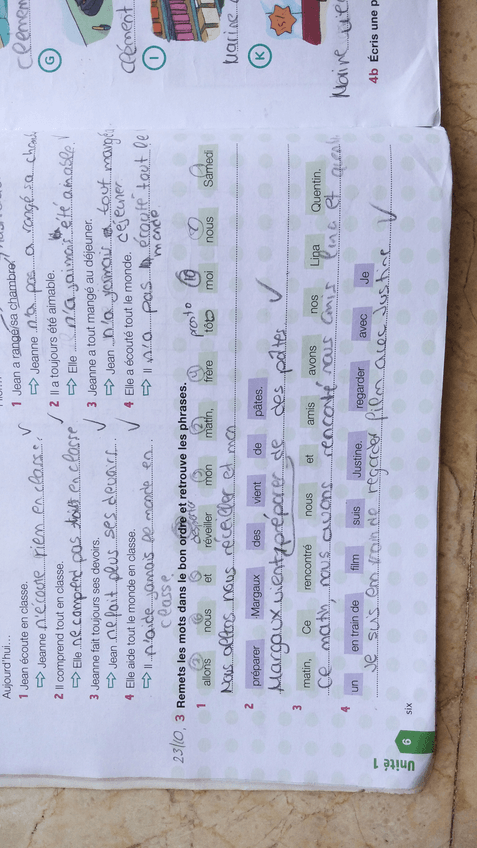 Aujourd'hui...
1 Jean écoute en classe.
Jeanne n'écoute riem en classe.
2 Il comprend tout en classe.
Elle ne compre pas tout en classe
3 Jeanne fait toujours ses devoirs.
Jean ne fait plus ses devoirs
4 Elle aide tout le monde en classe.
Il n'aide jamais le monde en classe
1 Jean a rangé sa chambre.
Jeanne n'a pas a rangé sa
2 Il a toujours été aimable.
Elle n'a jaimais été aimable
3 Jeanne a tout mangé au déjeuner.
Jean n'a jamais tout mangé déjeuner
4 Elle a écouté tout le monde.
Il n'a pas écouté tout le monde
23/10, 3 Remets les mots dans le bon ordre et retrouve les phrases.
1 allons nous et réveiller mon matin, frère tôt moi nous Samedi
Nous allons nous réveiller et mon
2 préparer Margaux des vient de pâtes.
Margaux vient préparer de des pâtes
3 matin, Ce rencontré nous et amis avons nos Lina Quentin.
ce matin, nous avons rencontré nous amis lina et
4 un en train de film suis Justine. regarder avec Je
Je suis em train de regarder film avec Justine
Unité 1
6
six
Clément
G
I
K
4b Écris une p